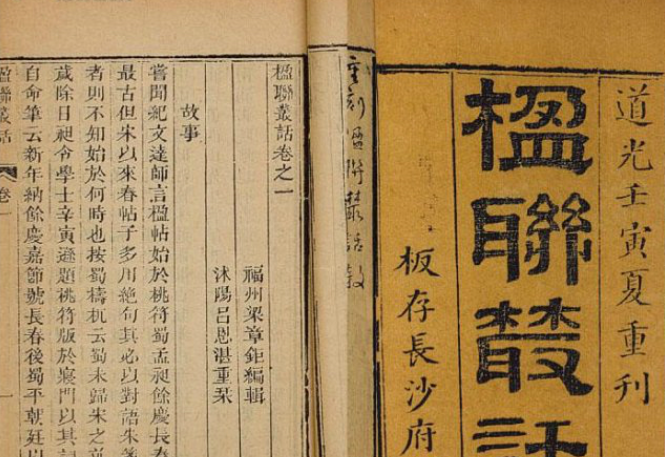 道光壬寅夏重刊
楹聯叢話
板存長沙府
重刻楹聯叢話敘
楹聯叢話卷之一
福州梁章鉅編輯
沭陽呂恩湛重栞
故事
嘗聞紀文達師言楹帖始於桃符蜀孟昶餘慶長春
最古但宋以來春帖子多用絶句其必以對語朱箋
者則不知始於何時也按蜀檮杌云蜀未歸宋之前
歲除日昶令學士辛寅遜題桃符版於寢門以其詞
自命筆云新年納餘慶嘉節號長春後蜀平朝廷以
楹聯叢話 卷一